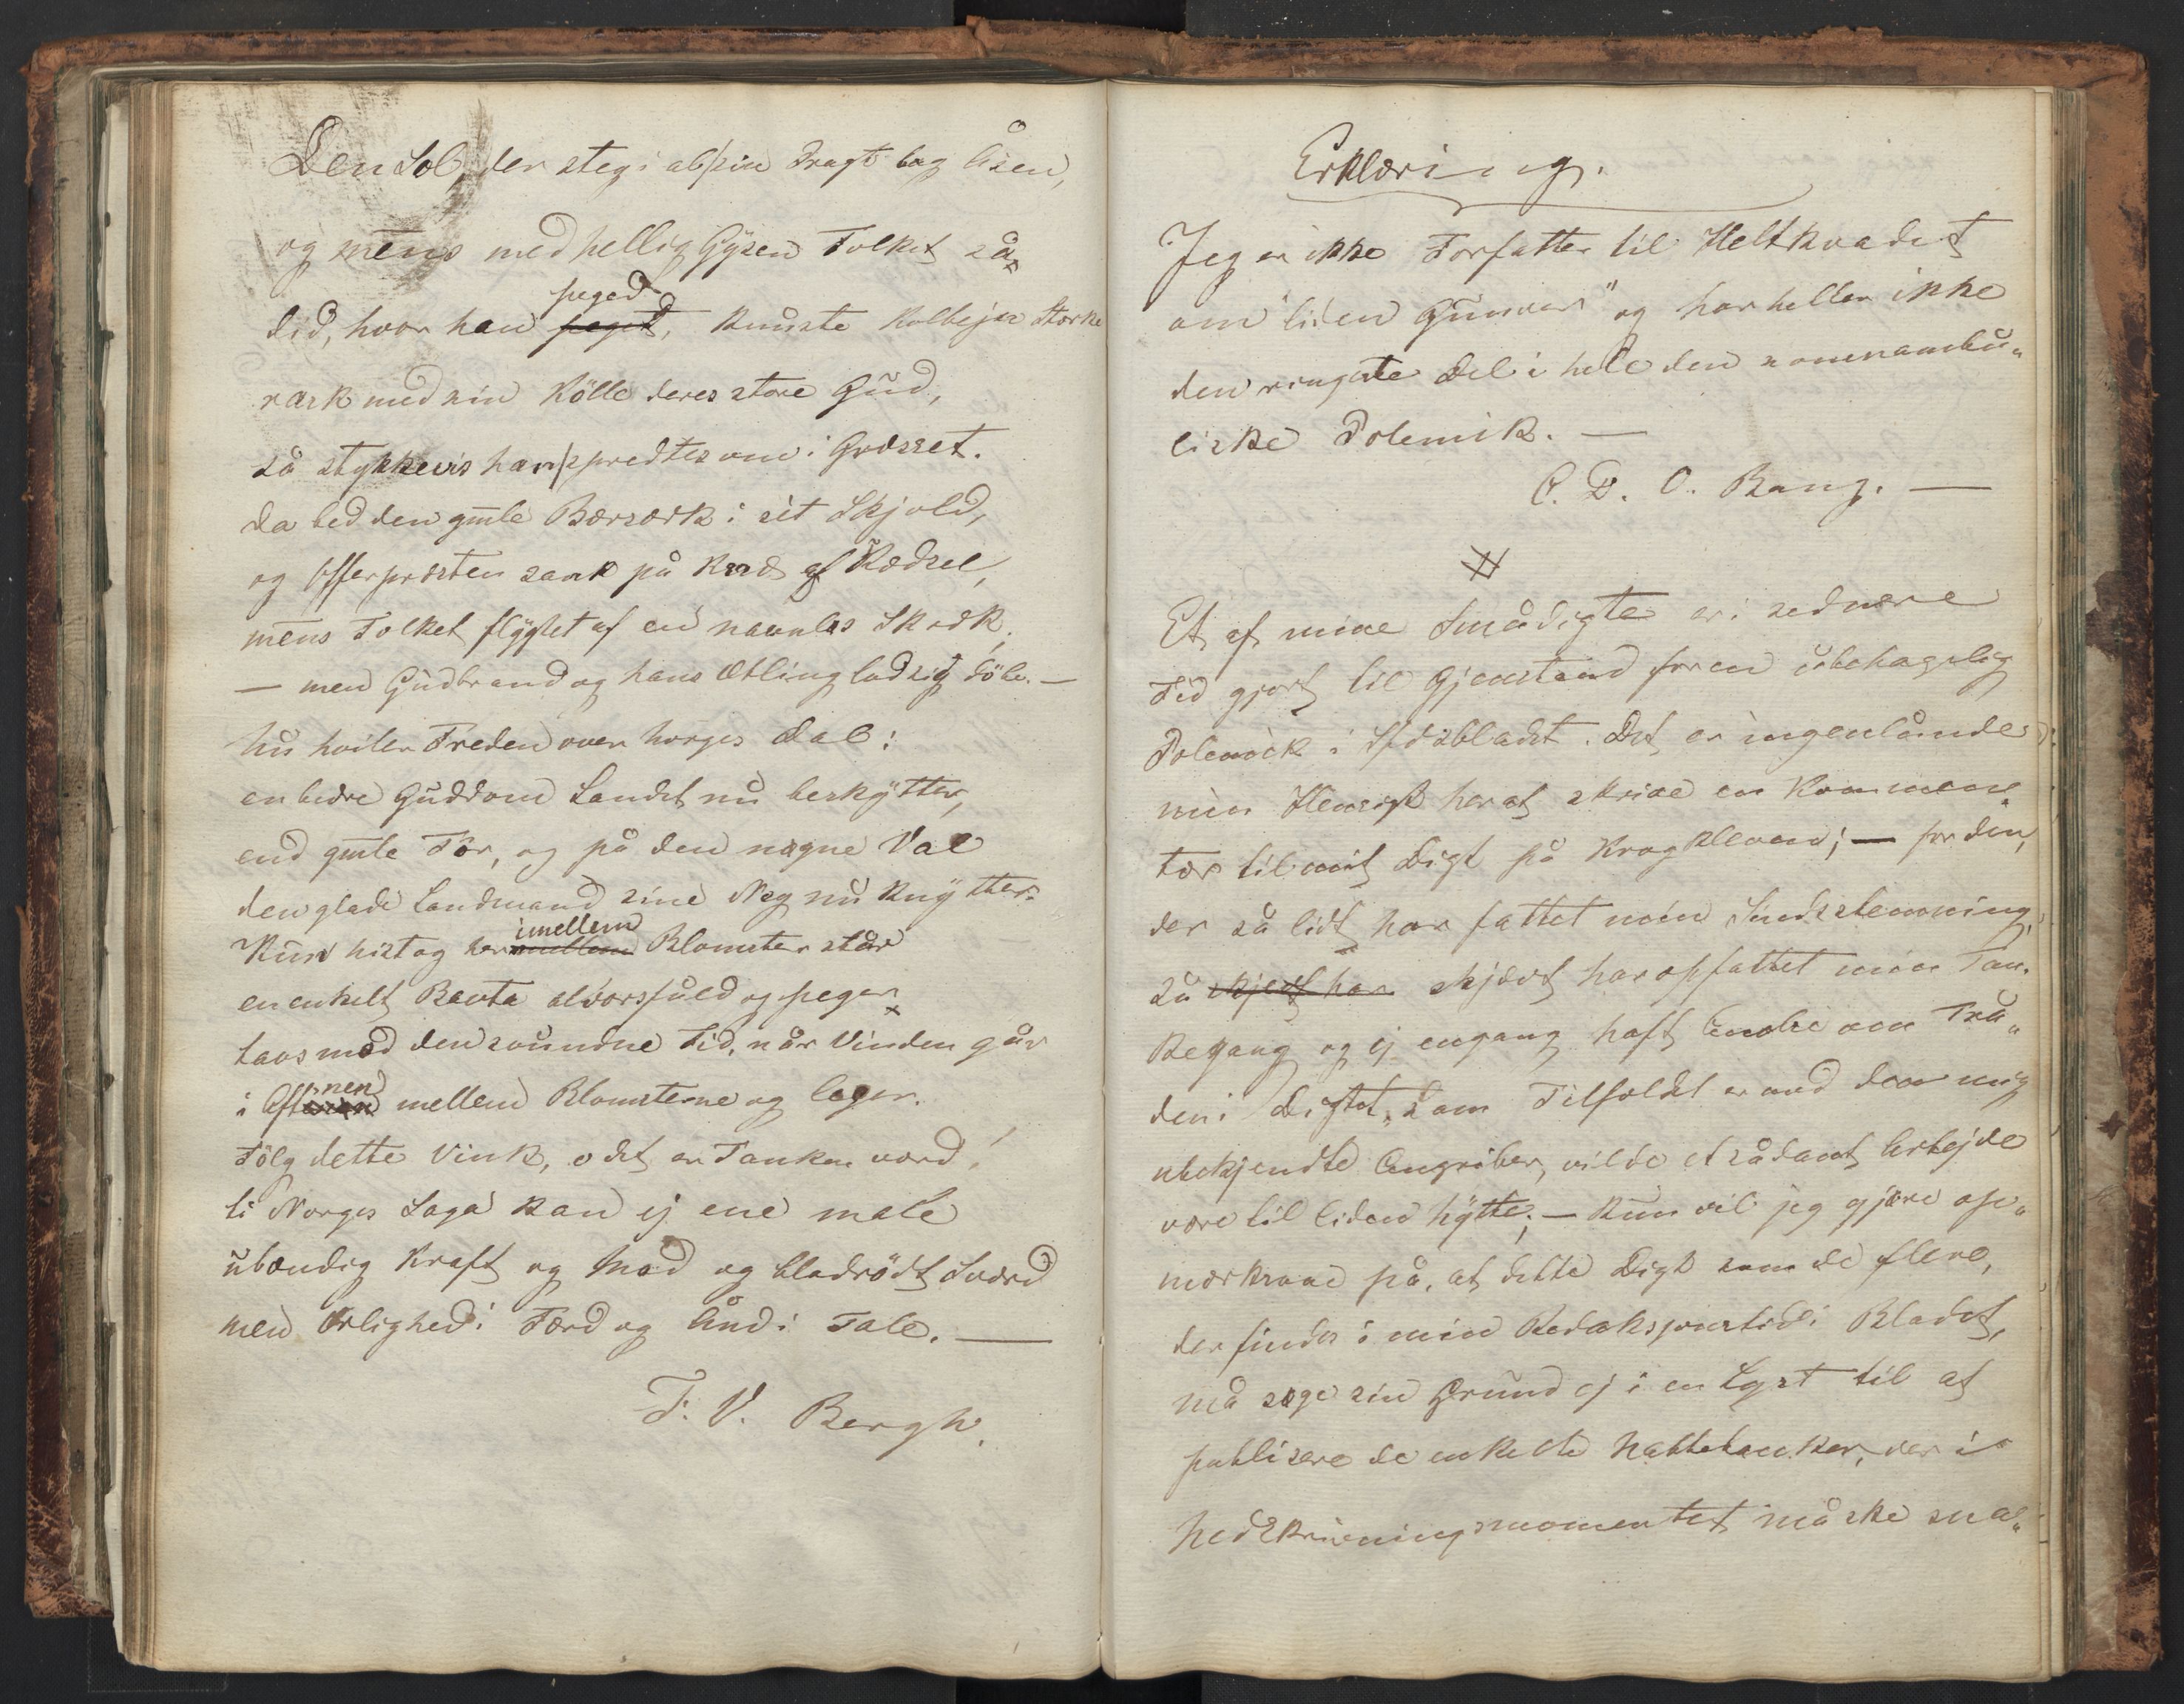 Den Sol, der steg i al sin Pragt bag Åsen,
og mens med hellig Gysen Folket så
did, hvor han peged, knuste Kolbejn Stærke
rask med sin Kölle deres store Gud,
så stykkevis han spredtes om i Græsset.
Da bed den gmle Bærsærk i sit Skjold,
og Offerpræsten sank på Knæ af Rædsel,
mens Folket flygtet af en navnløs Skræk;
— men Gudbrand og hans Ætling lod sig döbe. —
Nu hviler Freden over Norges Dal:
en bedre Guddom Landet nu beskytter,
end gmle Tor, og på den nøgne Val
den glade Landmand sine Neg nu knytter.
Kun hist og her imellem Blomster står
en enkelt Bauta alvorsfuld og peger
taus mod den svundne Tid, når Vinden går
i Aftnen mellem Blomsterne og leger.
Følg dette Vink, o det er Tanken værd,
ti Norges Saga kan ej ene male
ubændig Kraft og Mod og blodrödt Sværd
men Ærlighed i Færd og Ånd i Tale. —
T. V. Bergh.
Erklæring.
Jeg er ikke Forfatter til Heltkvadet
om "liden Gunvor" og har heller ikke
den ringeste Del i hele den somnambu„
liske Polemik. —
C. D. O. Bang. —
#
Et af mine Smådigte er i sednere
Tid gjort til Gjenstand for en ubehagelig
Polemick i Sfdsbladet. Det er ingenlunde
min Hensigt her at skrive en Kommen„
tar til mit Digt på Krogkleven; — for den,
der så lidt har fattet min Sindsstemning,
så skjevt har skjævt har opfattet min Tan„
kegang og ej engang haft Andre om Trå„
den i Digtet, som Tilfældet er med den mig
ubekjendte Angriber, vilde et sådant Arbejde
være til liden Nytte; — Kun vil jeg gjøre op„
mærksom på, at dette Digt som de flere,
der findes i min Redaksjonstid i Bladet,
må søge sin Grund ej i en Lyst til at
publisere de enkelte Nattetanker, der i
Nedskrivningsmomentet måske sna„